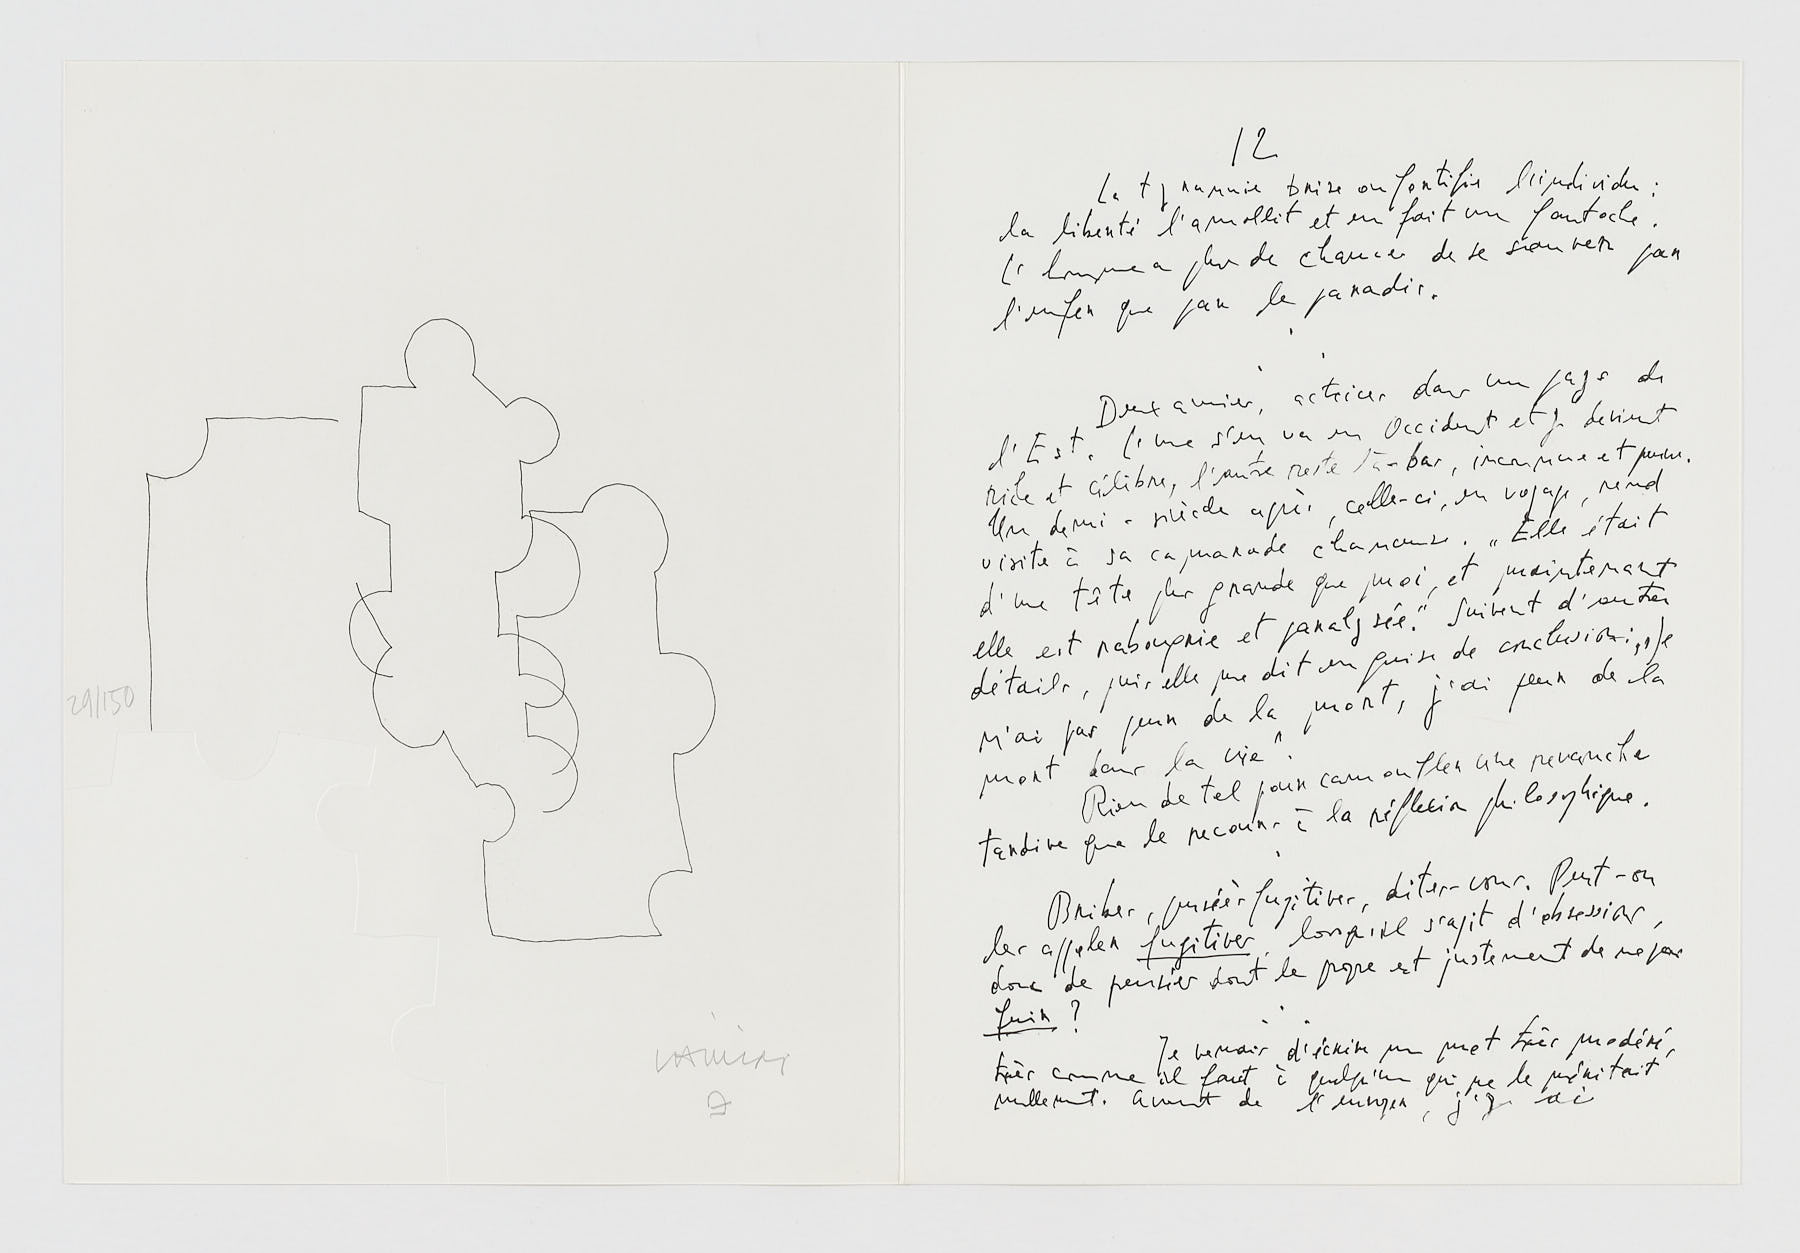 29/150
12
La tyrannie brise ou fortifie l'individu ;
la liberté l'amollit et en fait un fantoche.
L'homme a plus de chances de se sauver par
l'enfer que par le paradis.
Deux amies, actrices dans un pays de
l'Est. L'une s'en va en Occident et y devient
riche et célèbre, l'autre reste là-bas, inconnue et pauvre.
Un demi-siècle après, celle-ci, en voyage, rend
visite à sa camarade chanceuse. "Elle était
d'une tête plus grande que moi, et maintenant
elle est rabougrie et paralysée." Suivent d'autres
détails, puis elle me dit en guise de conclusion : "Je
n'ai pas peur de la mort, j'ai peur de la
mort dans la vie".
Rien de tel pour camoufler une revanche
tardive que le recours à la réflexion philosophique.
Bribes, pensées fugitives, dites-vous. Peut-on
les appeler fugitives, lorsqu'il s'agit d'obsessions,
donc de pensées dont le propre est justement de ne pas
fuir ?
Je venais d'écrire un mot très modéré,
très comme il faut à quelqu'un qui ne le méritait
nullement. Avant de l'envoyer, j'y ai